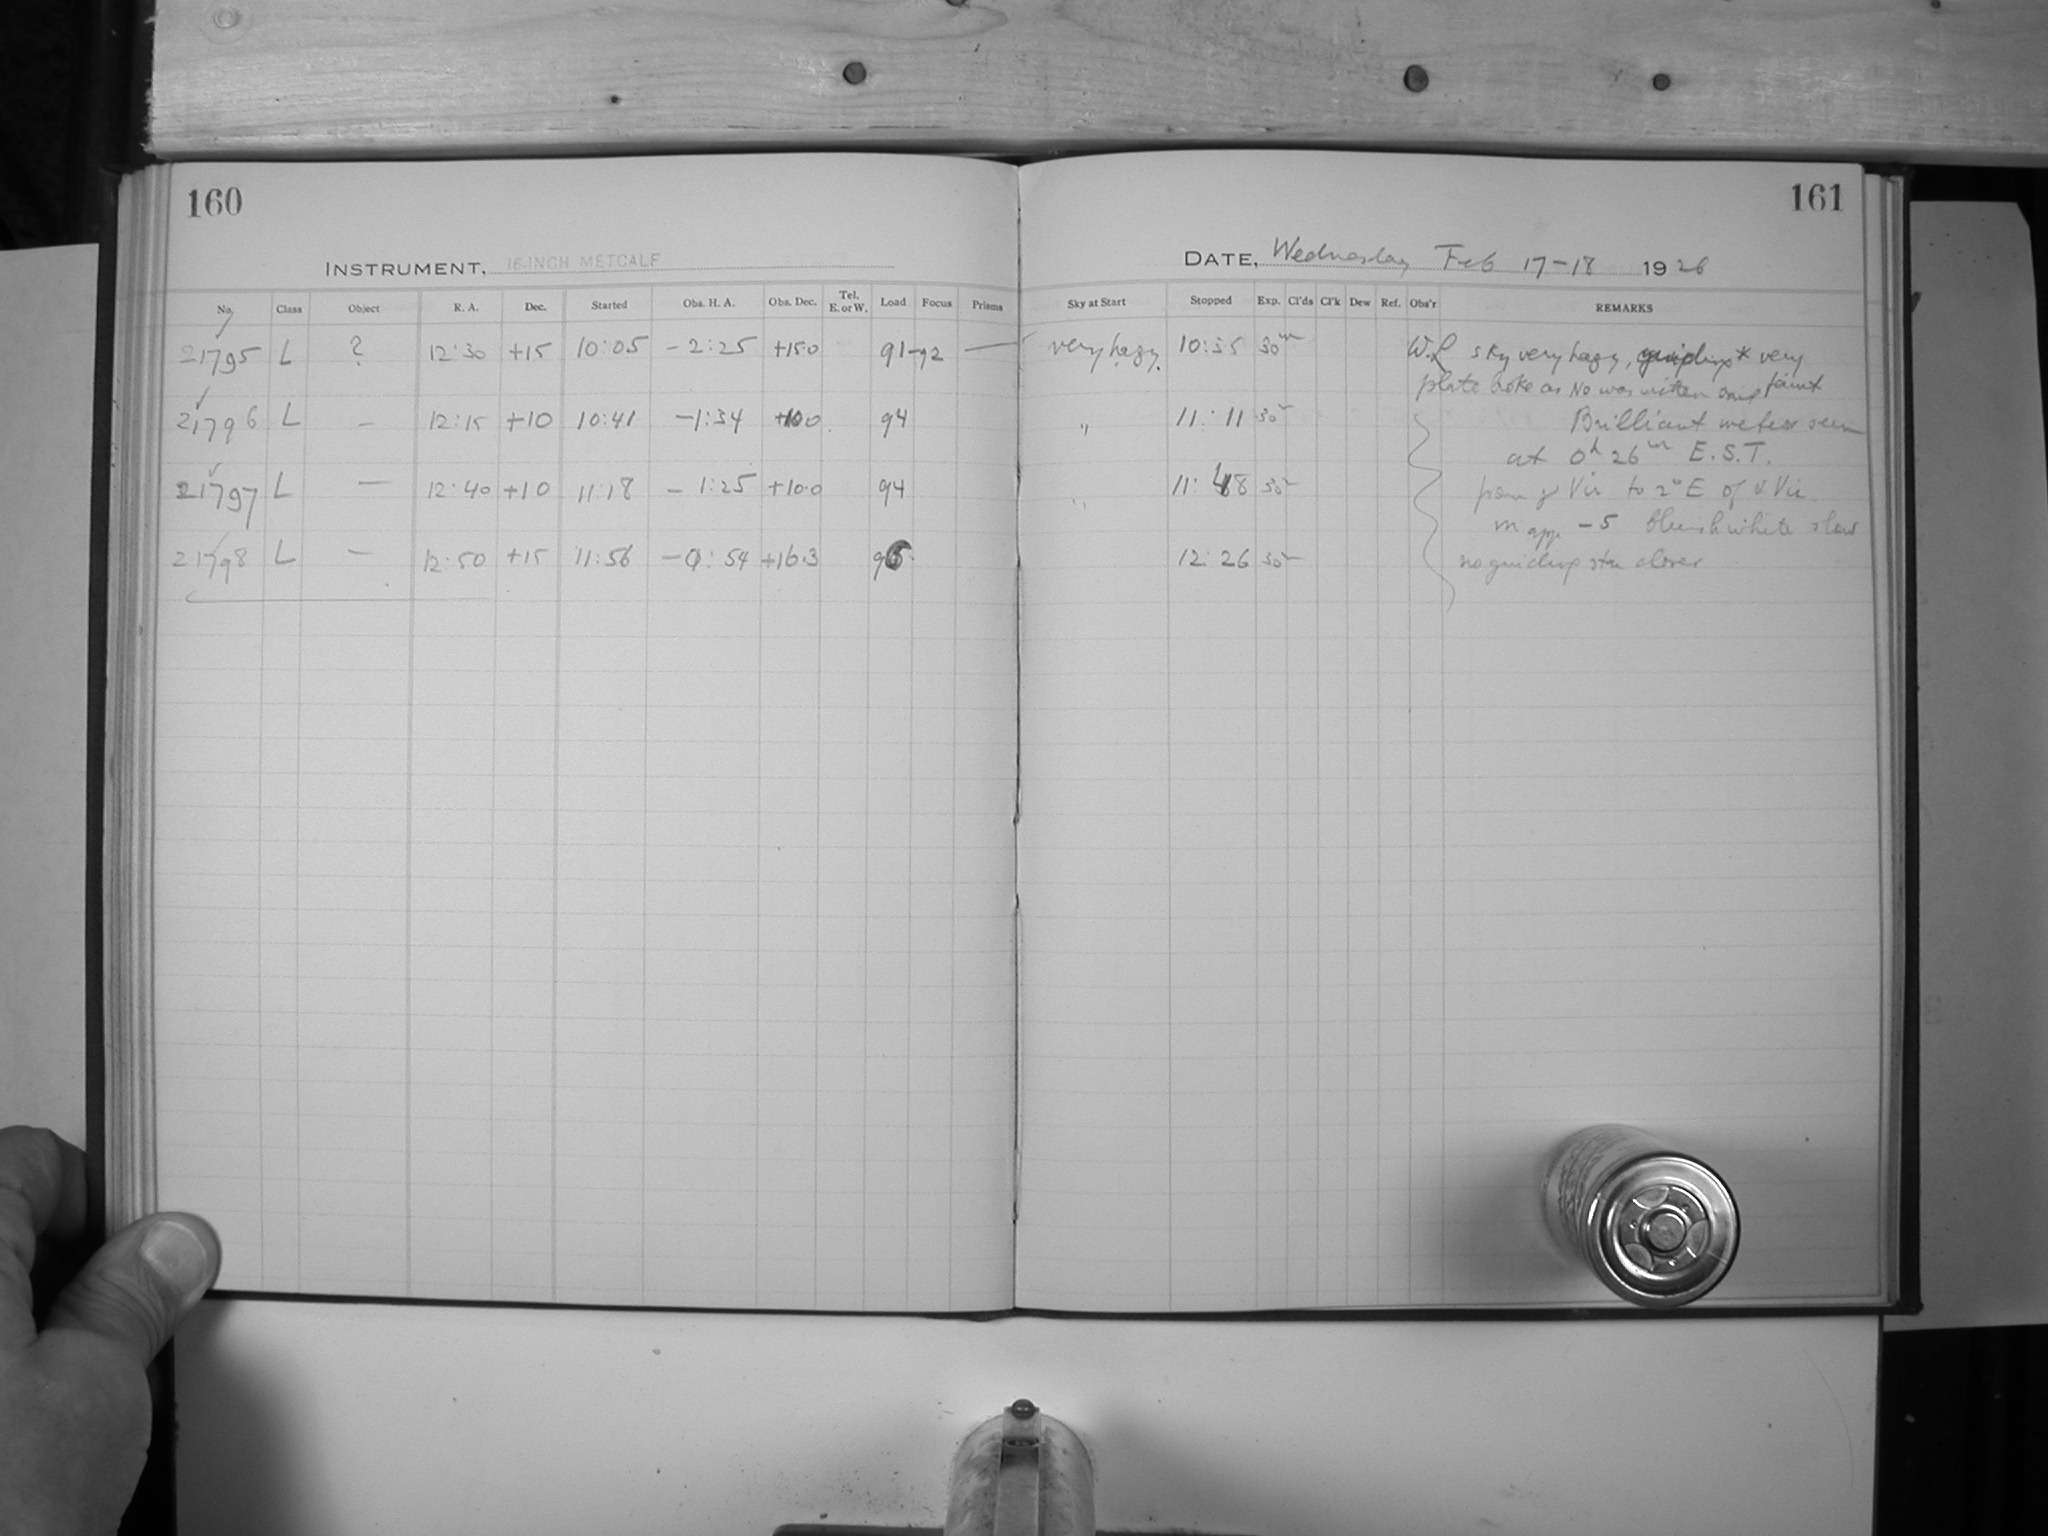 160
161
INSTRUMENT, 16-INCH METCALF
DATE, Wednesday Feb 17-18 1926
No. Class Object R. A. Dec. Started Obs. H. A. Obs. Dec. Tel. E. or W. Load Focus Prisms Sky at Start Stopped Exp. Cl'ds Cl'k Dew Ref. Obs'r REMARKS
21795 L ? 12:30 +15 10:05 -2:25 +15.0 91-92 — very hazy. 10:35 30m W.L sky very hazy, guiding * very
plate broke as No was written on it faint
21796 L — 12:15 +10 10:41 -1:34 +10.0 94 " 11:11 30m Brilliant meteor seen
at 0h 26m E.S.T.
21797 L — 12:40 +10 11:18 -1:25 +10.0 94 " 11:48 30m from γ Vir to 2° E of α Vir.
m app. -5 bluish white slow
21798 L — 12:50 +15 11:56 -0:54 +16.3 95 12:26 30m no guiding star closer